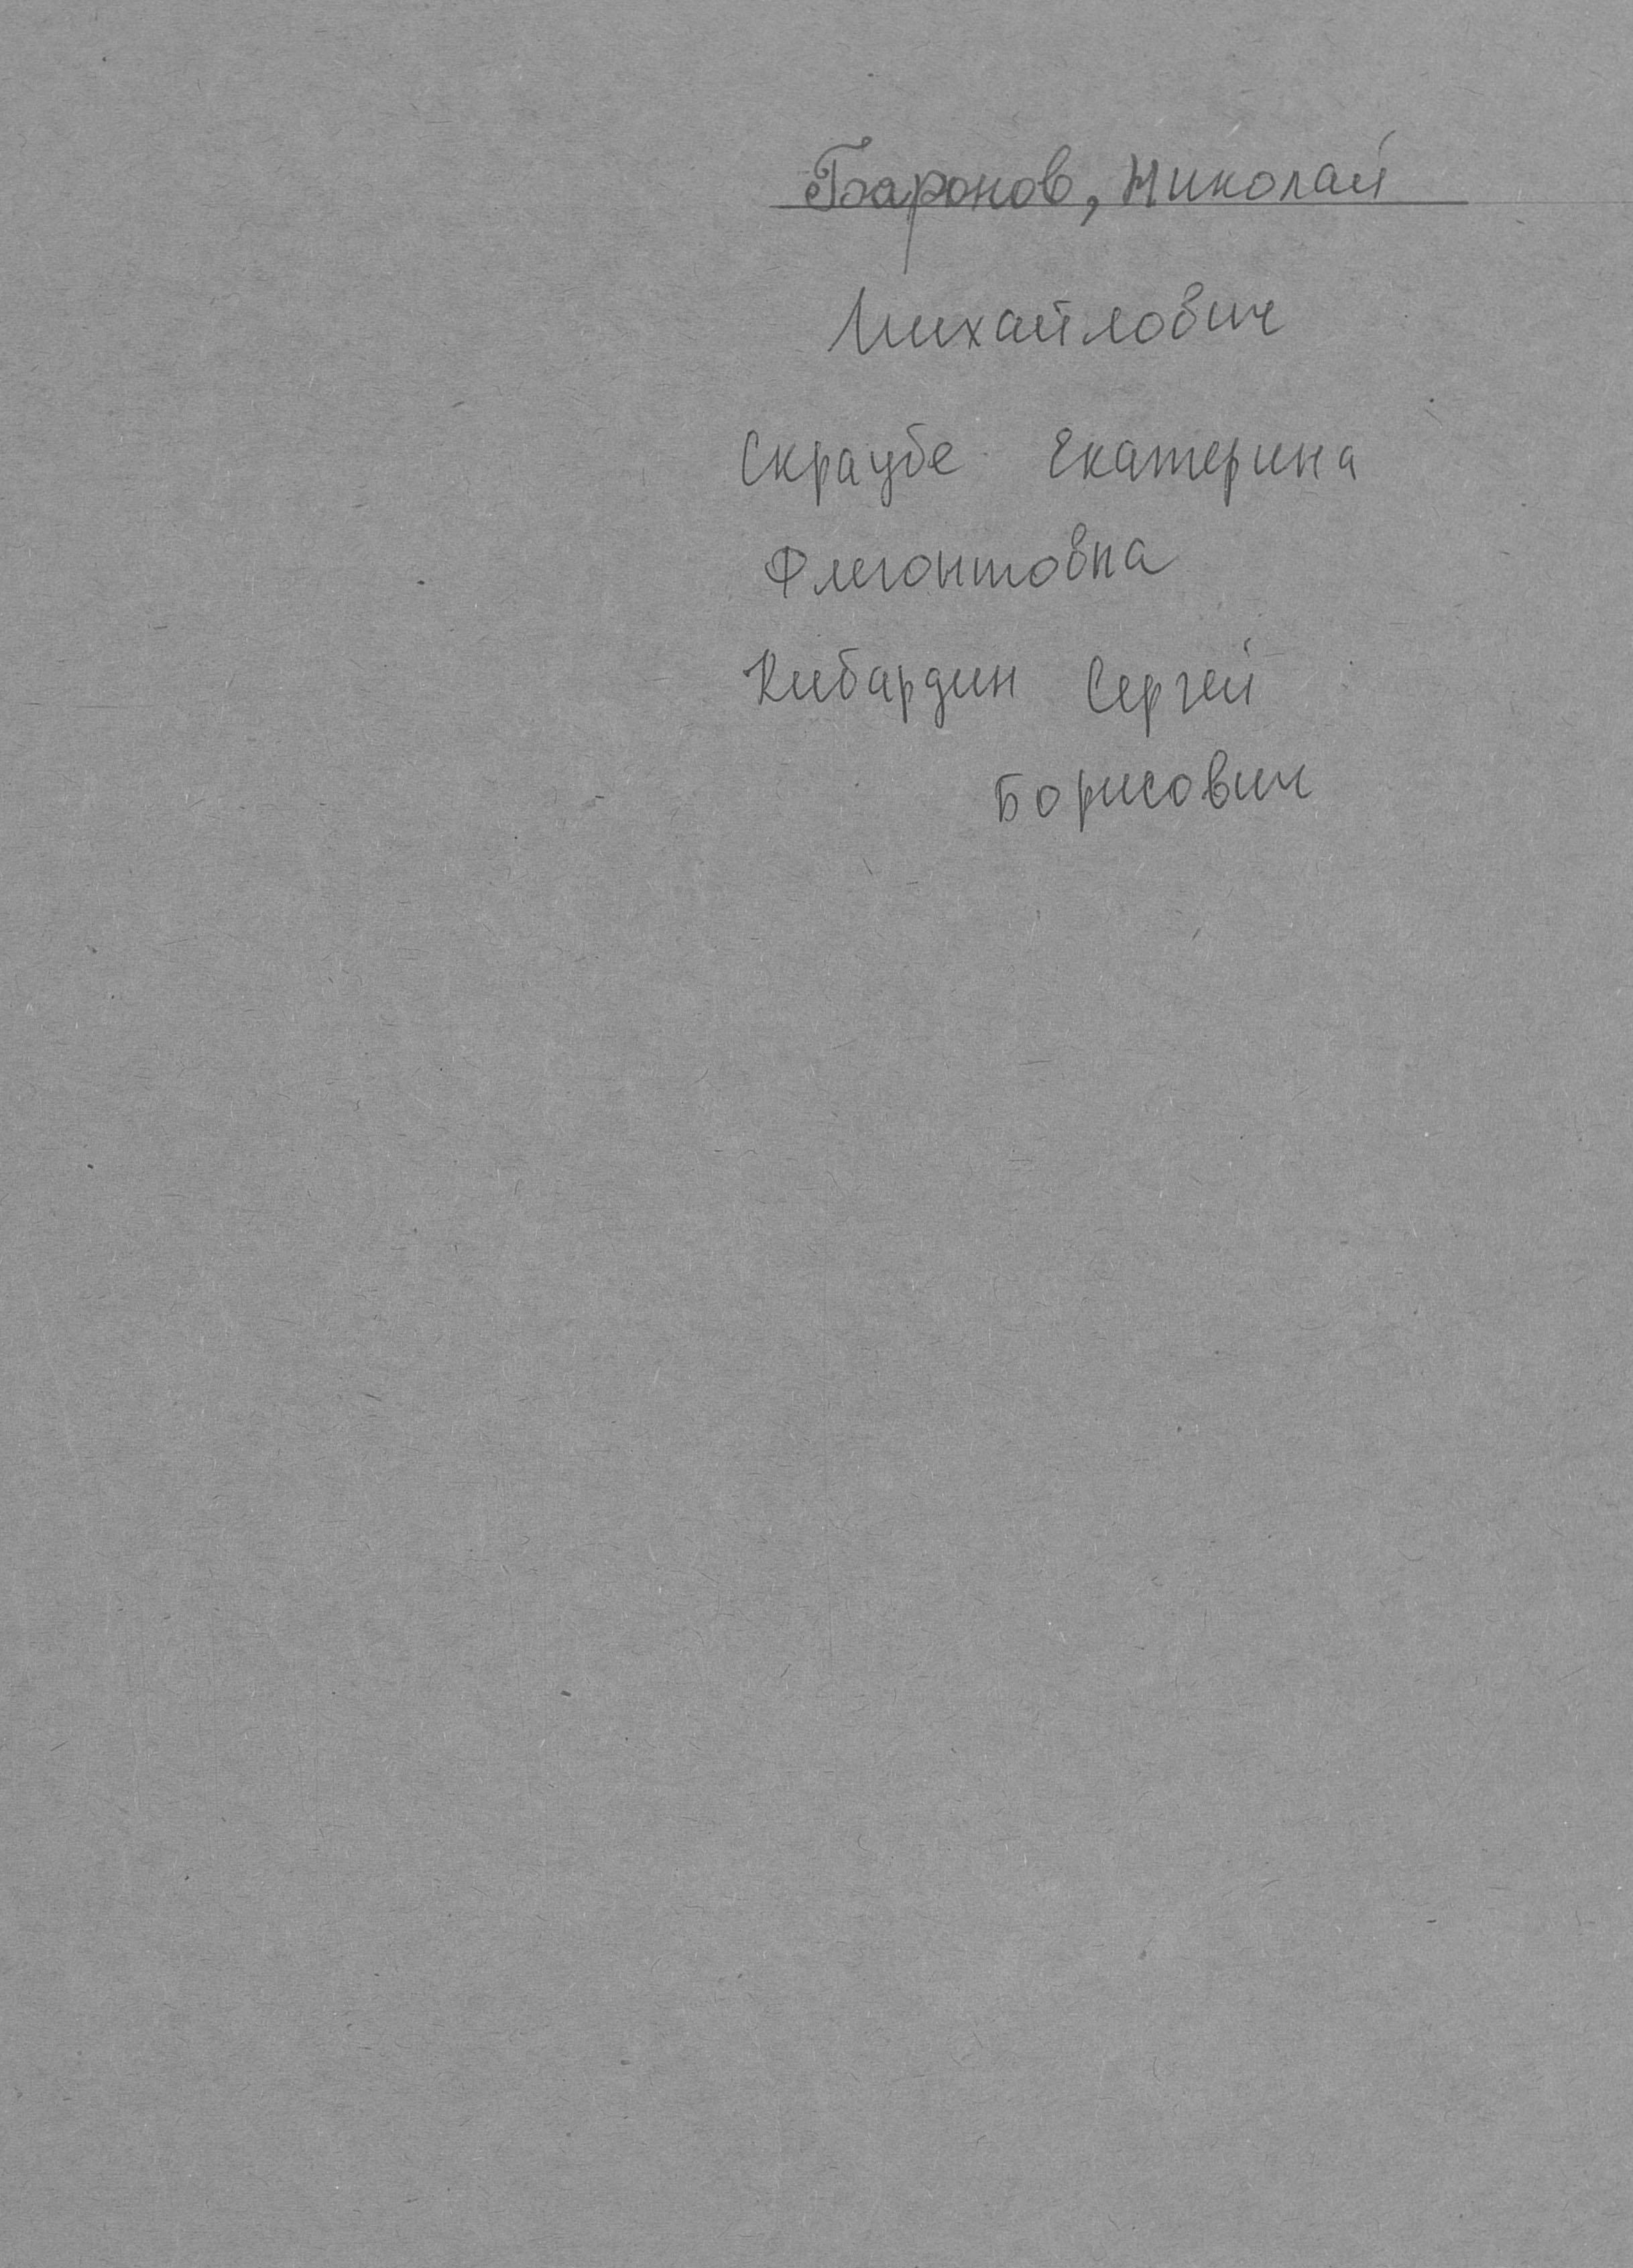 Баронов, Николай
Михайлович
Скраубе Екатерина
Флегонтовна
Кибардин Сергей
Борисович